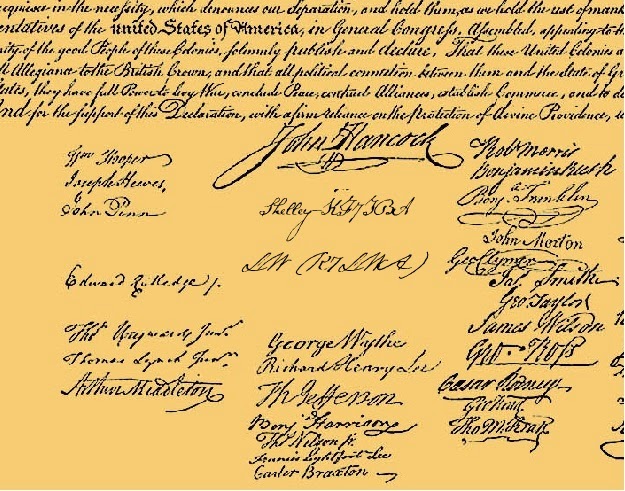 acquiesce in the necessity, which denounces our Separation, and hold them, as we hold the rest of mank
entatives of the united States of America, in General Congress, Assembled, appealing to th
ity of the good People of these Colonies, solemnly publish and declare, That these United Colonies a
ll Allegiance to the British Crown, and that all political connection between them and the State of Gr
tates, they have full Power to levy War, conclude Peace, contract Alliances, establish Commerce, and to d
And for the support of this Declaration, with a firm reliance on the Protection of divine Providence, w
John Hancock
Wm Hooper
Joseph Hewes,
John Penn
Edward Rutledge /.
Thos Heyward Junr.
Thomas Lynch Junr.
Arthur Middleton
Shelley KF7TBA
LW (R7LWA)
George Wythe
Richard Henry Lee
Th Jefferson
Benja Harrison
Thos Nelson jr.
Francis Lightfoot Lee
Carter Braxton
Robt Morris
Benjamin Rush
Benja Franklin
John Morton
Geo Clymer
Jas. Smith
Geo. Taylor
James Wilson
Geo. Ross
Caesar Rodney
Geo Read
Tho M:Kean